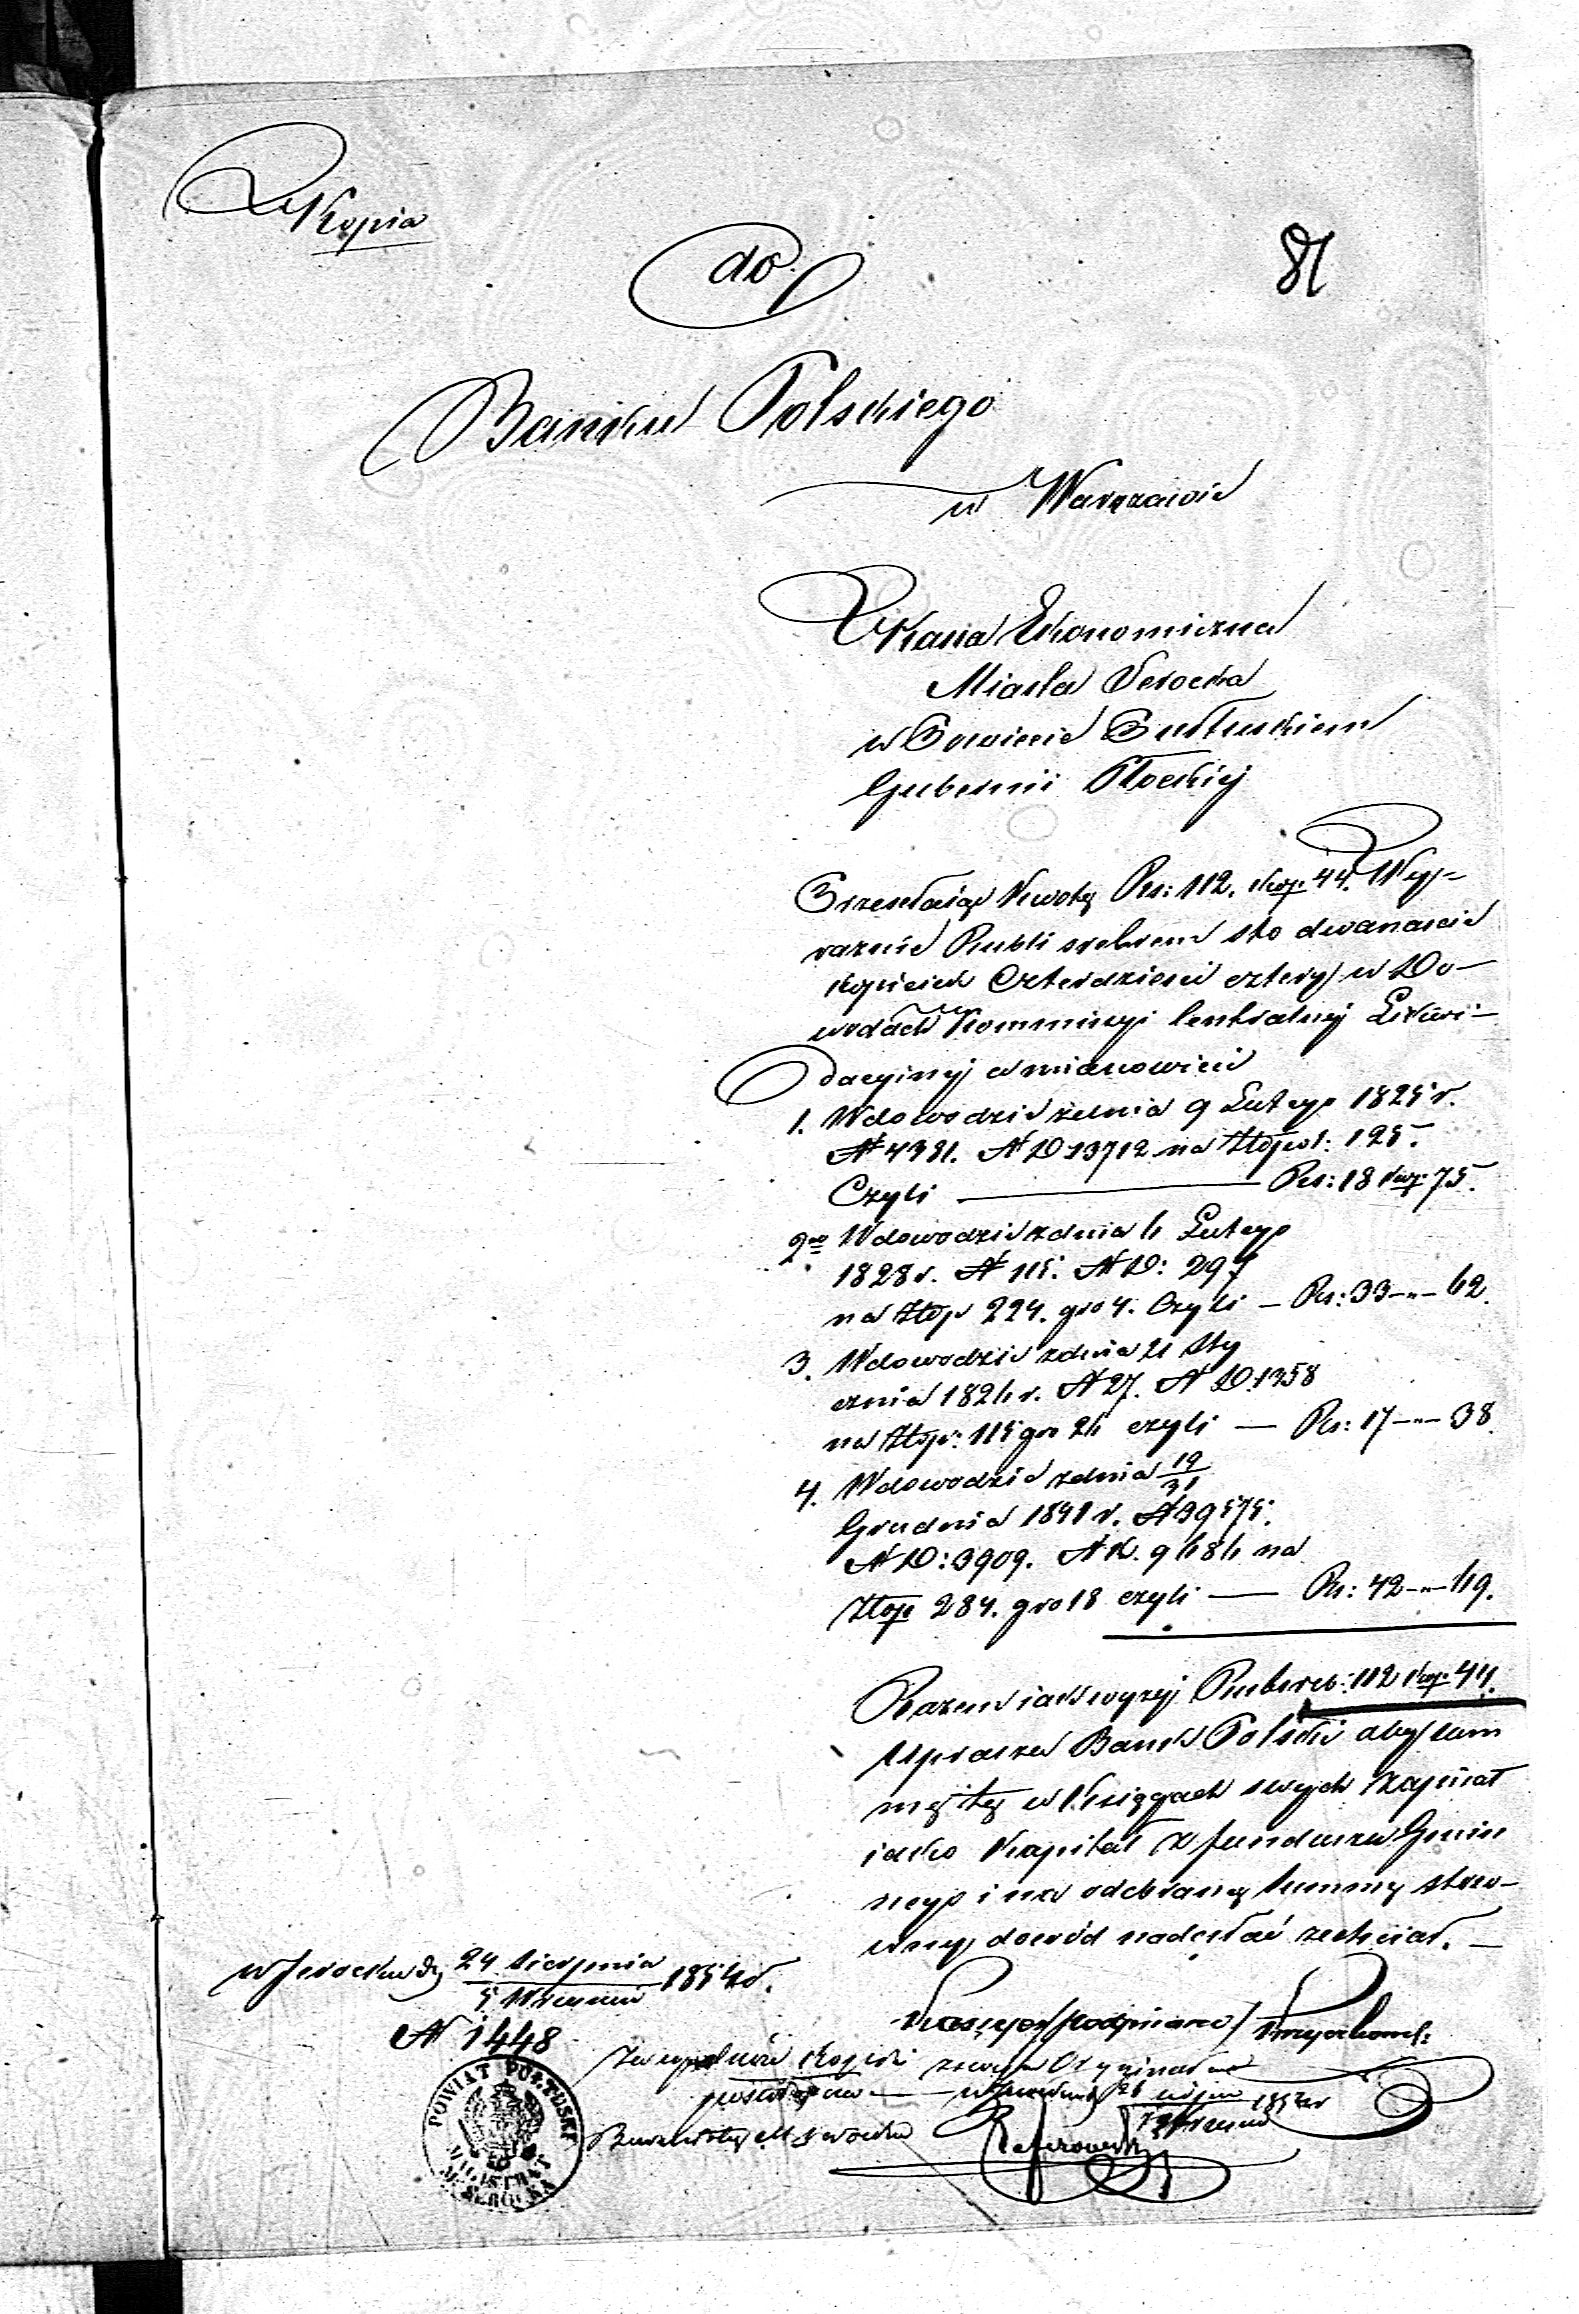 Kopia
81
do
Banku Polskiego
w Warszawie
Kassa Ekonomiczna
Miasta Serocka
w Powiecie Pułtuskiem
Gubernii Płockiej
Przesełaiąc Kwotę Rs: 112. kop. 44. Wy-
raznie Rubli srebrem sto dwanascie
kopieiek Czterdziesci cztery w Do-
wodach Kommissyi Centralnej Likwi-
dacyjnej a mianowicie
1. W dowodzie z dnia 9 Lutego 1825 r.
N 4381. N D 13712 na Złopol: 125.
Czyli — Rs: 18 kop: 75.
2. W dowodzie z dnia 6 Lutego
1828 r. N 115. N D: 297
na Złop 224. gro 4. Czyli — Rs: 33 -"- 62.
3. W dowodzie z dnia 21 Sty
cznia 1826 r. N 27. N D: 1358
na Złop: 115 gro 26 czyli — Rs: 17 -"- 38.
4. W dowodzie z dnia 19/31
Grudnia 1841 r. N 39575.
N D: 3909. N K. 9686 na
Złop 284. gro 18 czyli — Rs: 42 -"- 69.
Razem iak wyzej Rub sreb: 112 kop. 44.
Uprasza Bank Polski aby sum
mę tę w Księgach swych zapisał
iako Kapitał z funduszu Gmin
nego i na odebraną summę stoso-
wny dowód nadesłać zechciał. —
w Serocku d. 24 Sierpnia / 5 Wrzesnia 1854 r.
N 1448
Kassyer /podpisano/
Za zgodność Kopii z swym Oryginałem
poświadcza — w Serocku
Burmistrz M Serocka
POWIAT PUŁTUSKI
MAGISTRAT
M. SEROCKA